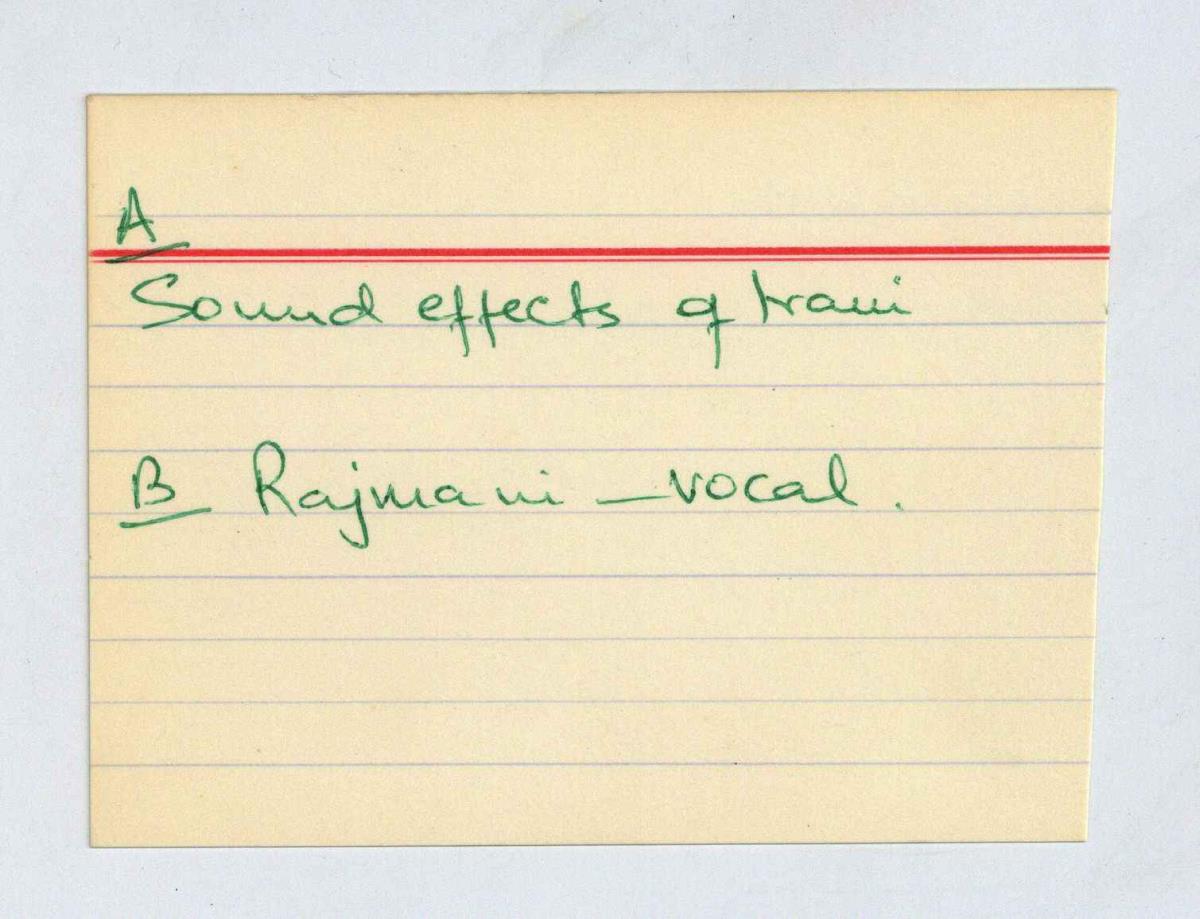 A
Sound effects of train
B Rajmani – vocal.